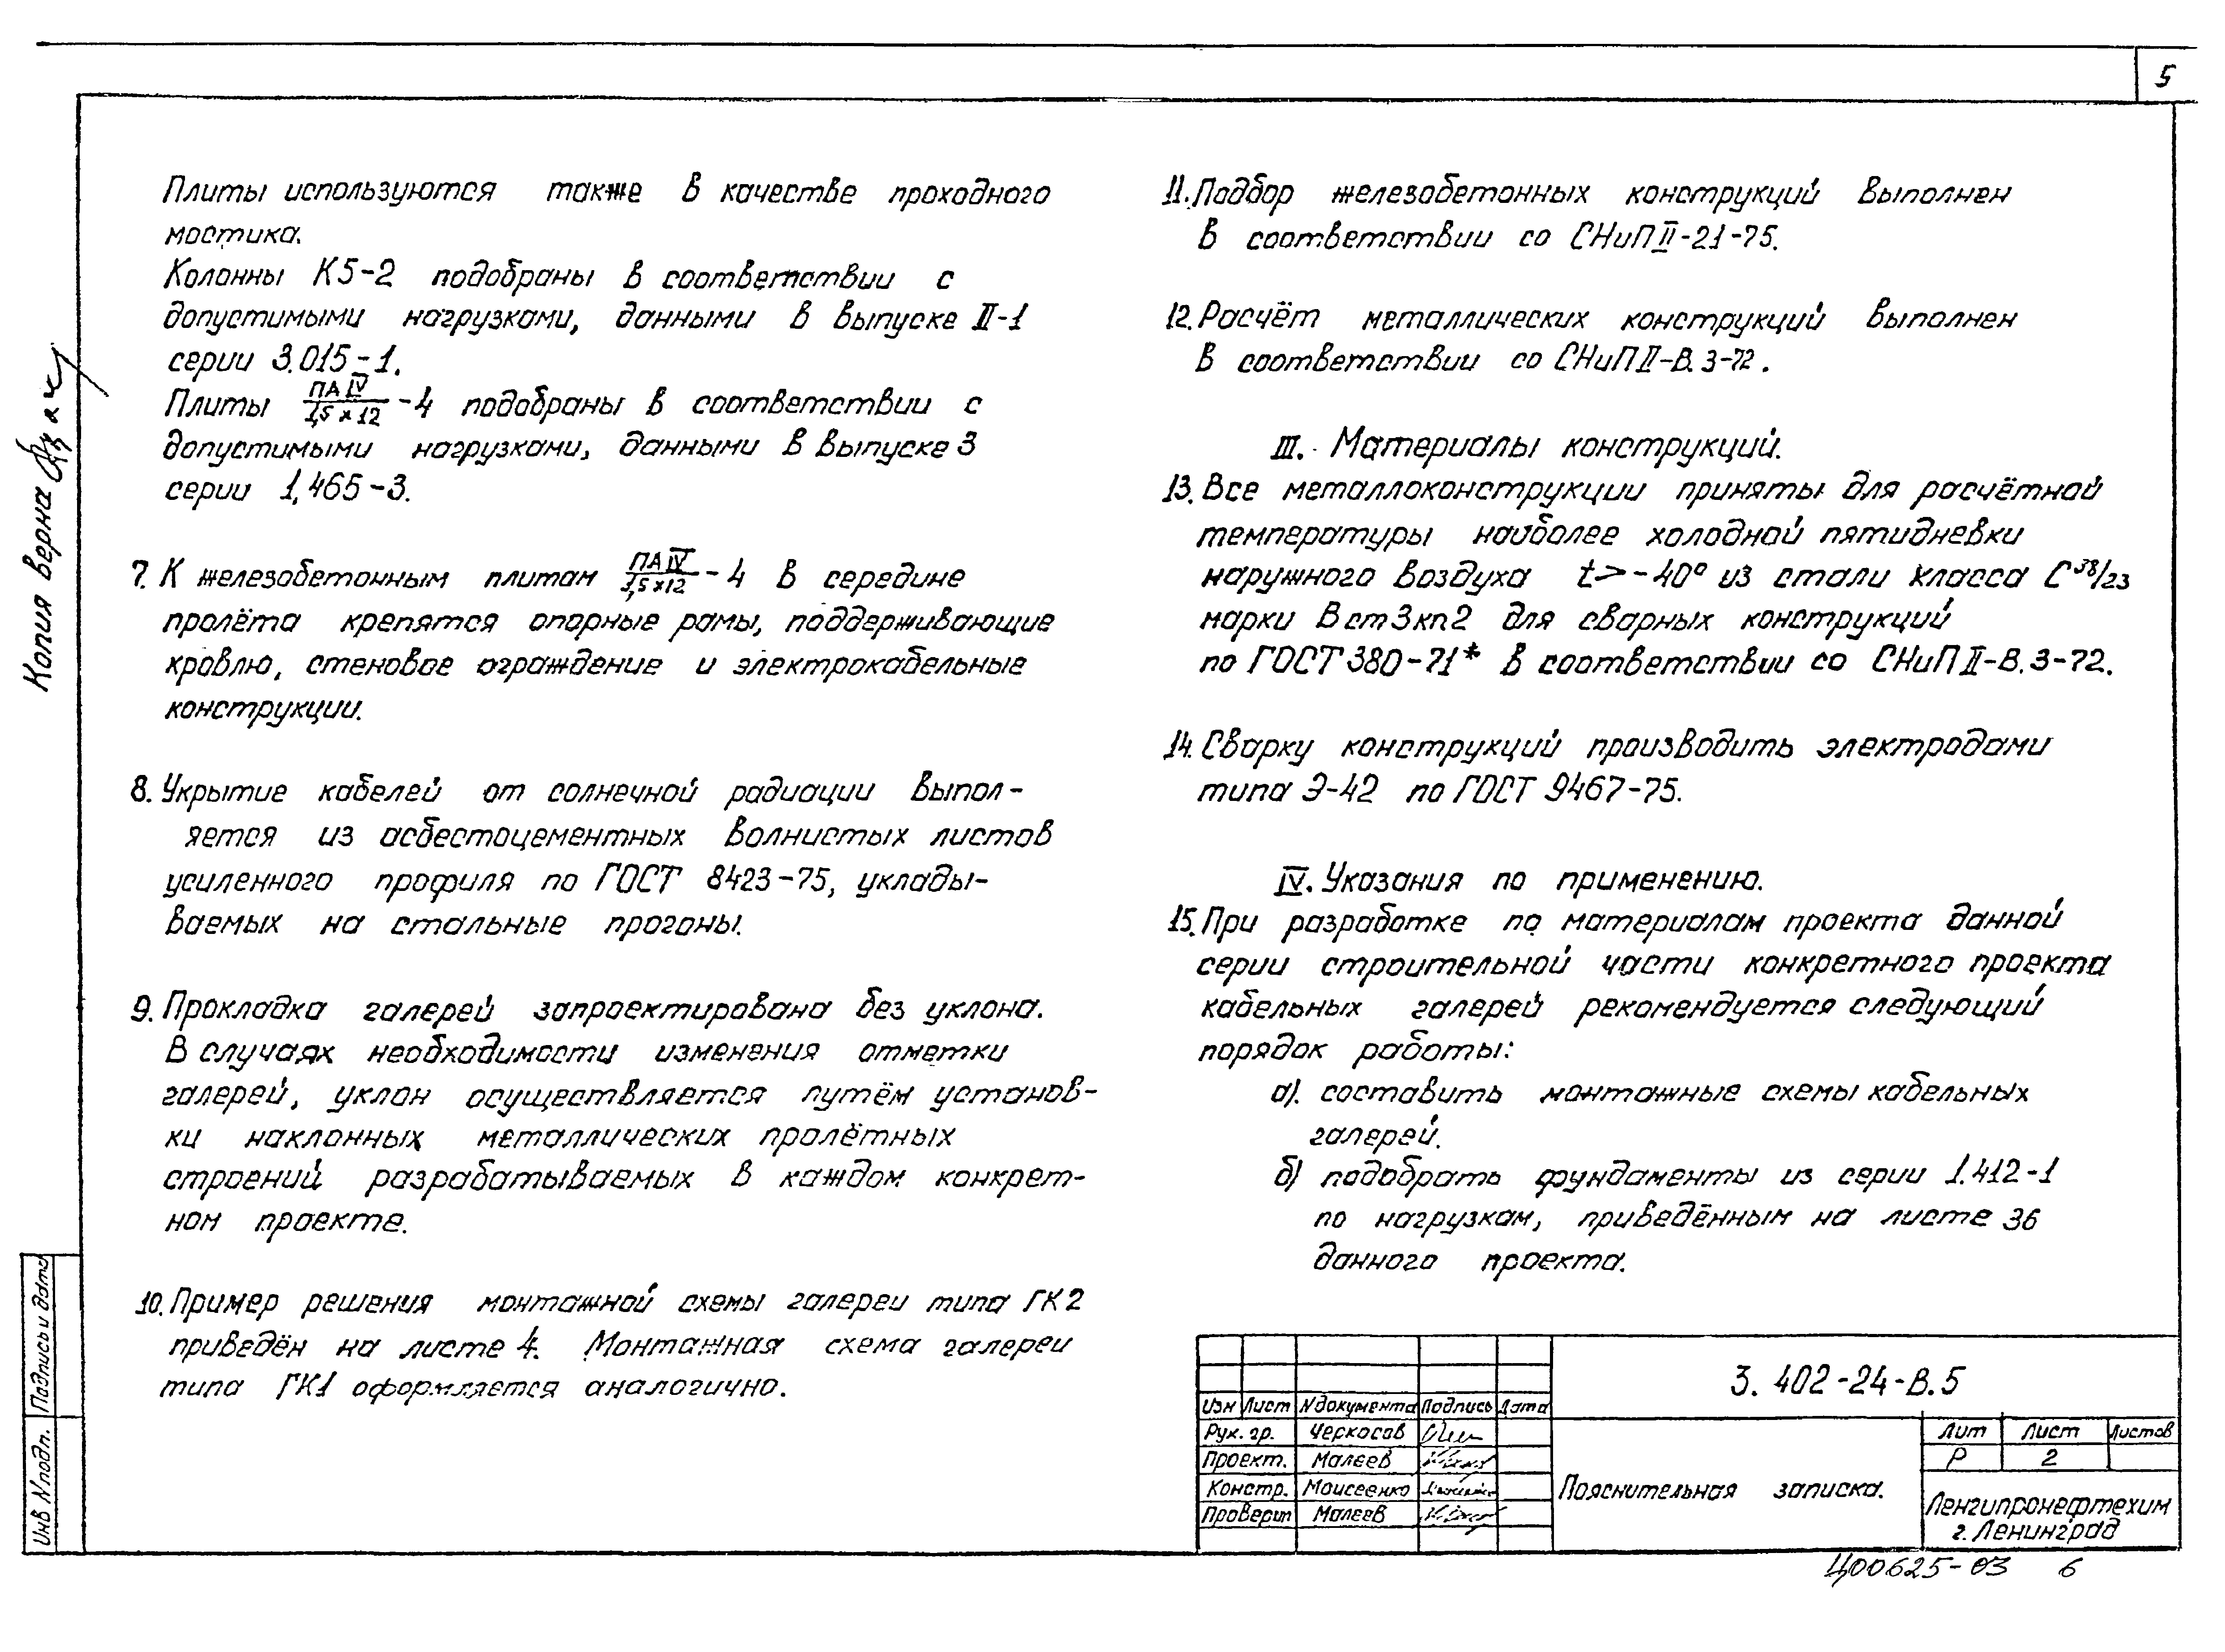 5
Плиты используются также в качестве проходного
мостика.
Колонны К5-2 подобраны в соответствии с
допустимыми нагрузками, данными в выпуске II-1
серии 3.015-1.
Плиты ПАIV/1,5×12-4 подобраны в соответствии с
допустимыми нагрузками, данными в выпуске 3
серии 1.465-3.
7. К железобетонным плитам ПАIV/1,5×12-4 в середине
пролёта крепятся опорные рамы, поддерживающие
кровлю, стеновое ограждение и электрокабельные
конструкции.
8. Укрытие кабелей от солнечной радиации выпол-
яется из асбестоцементных волнистых листов
усиленного профиля по ГОСТ 8423-75, уклады-
ваемых на стальные прогоны.
9. Прокладка галерей запроектирована без уклона.
В случаях необходимости изменения отметки
галерей, уклон осуществляется путём установ-
ки наклонных металлических пролётных
строений разрабатываемых в каждом конкрет-
ном проекте.
10. Пример решения монтажной схемы галереи типа ГК2
приведён на листе 4. Монтажная схема галереи
типа ГК1 оформляется аналогично.
11. Подбор железобетонных конструкций выполнен
в соответствии со СНиП II-21-75.
12. Расчёт металлических конструкций выполнен
в соответствии со СНиП II-В.3-72.
III. Материалы конструкций.
13. Все металлоконструкции приняты для расчётной
температуры наиболее холодной пятидневки
наружного воздуха t>-40° из стали класса С38/23
марки Вст3кп2 для сварных конструкций
по ГОСТ 380-71* в соответствии со СНиП II-В.3-72.
14. Сварку конструкций производить электродами
типа Э-42 по ГОСТ 9467-75.
IV. Указания по применению.
15. При разработке по материалам проекта данной
серии строительной части конкретного проекта
кабельных галерей рекомендуется следующий
порядок работы:
а). составить монтажные схемы кабельных
галерей.
б) подобрать фундаменты из серии 1.412-1
по нагрузкам, приведённым на листе 36
данного проекта.
Копия верна
Подпись и дата
Инв № подл.
3.402-24-В.5
Изм Лист № документа Подпись Дата
Рук. гр. Черкасов
Проект. Малеев
Констр. Моисеенко
Проверил Малеев
Пояснительная записка.
Лит Лист Листов
Р 2
Ленгипронефтехим
г. Ленинград
Ц00625-03 6